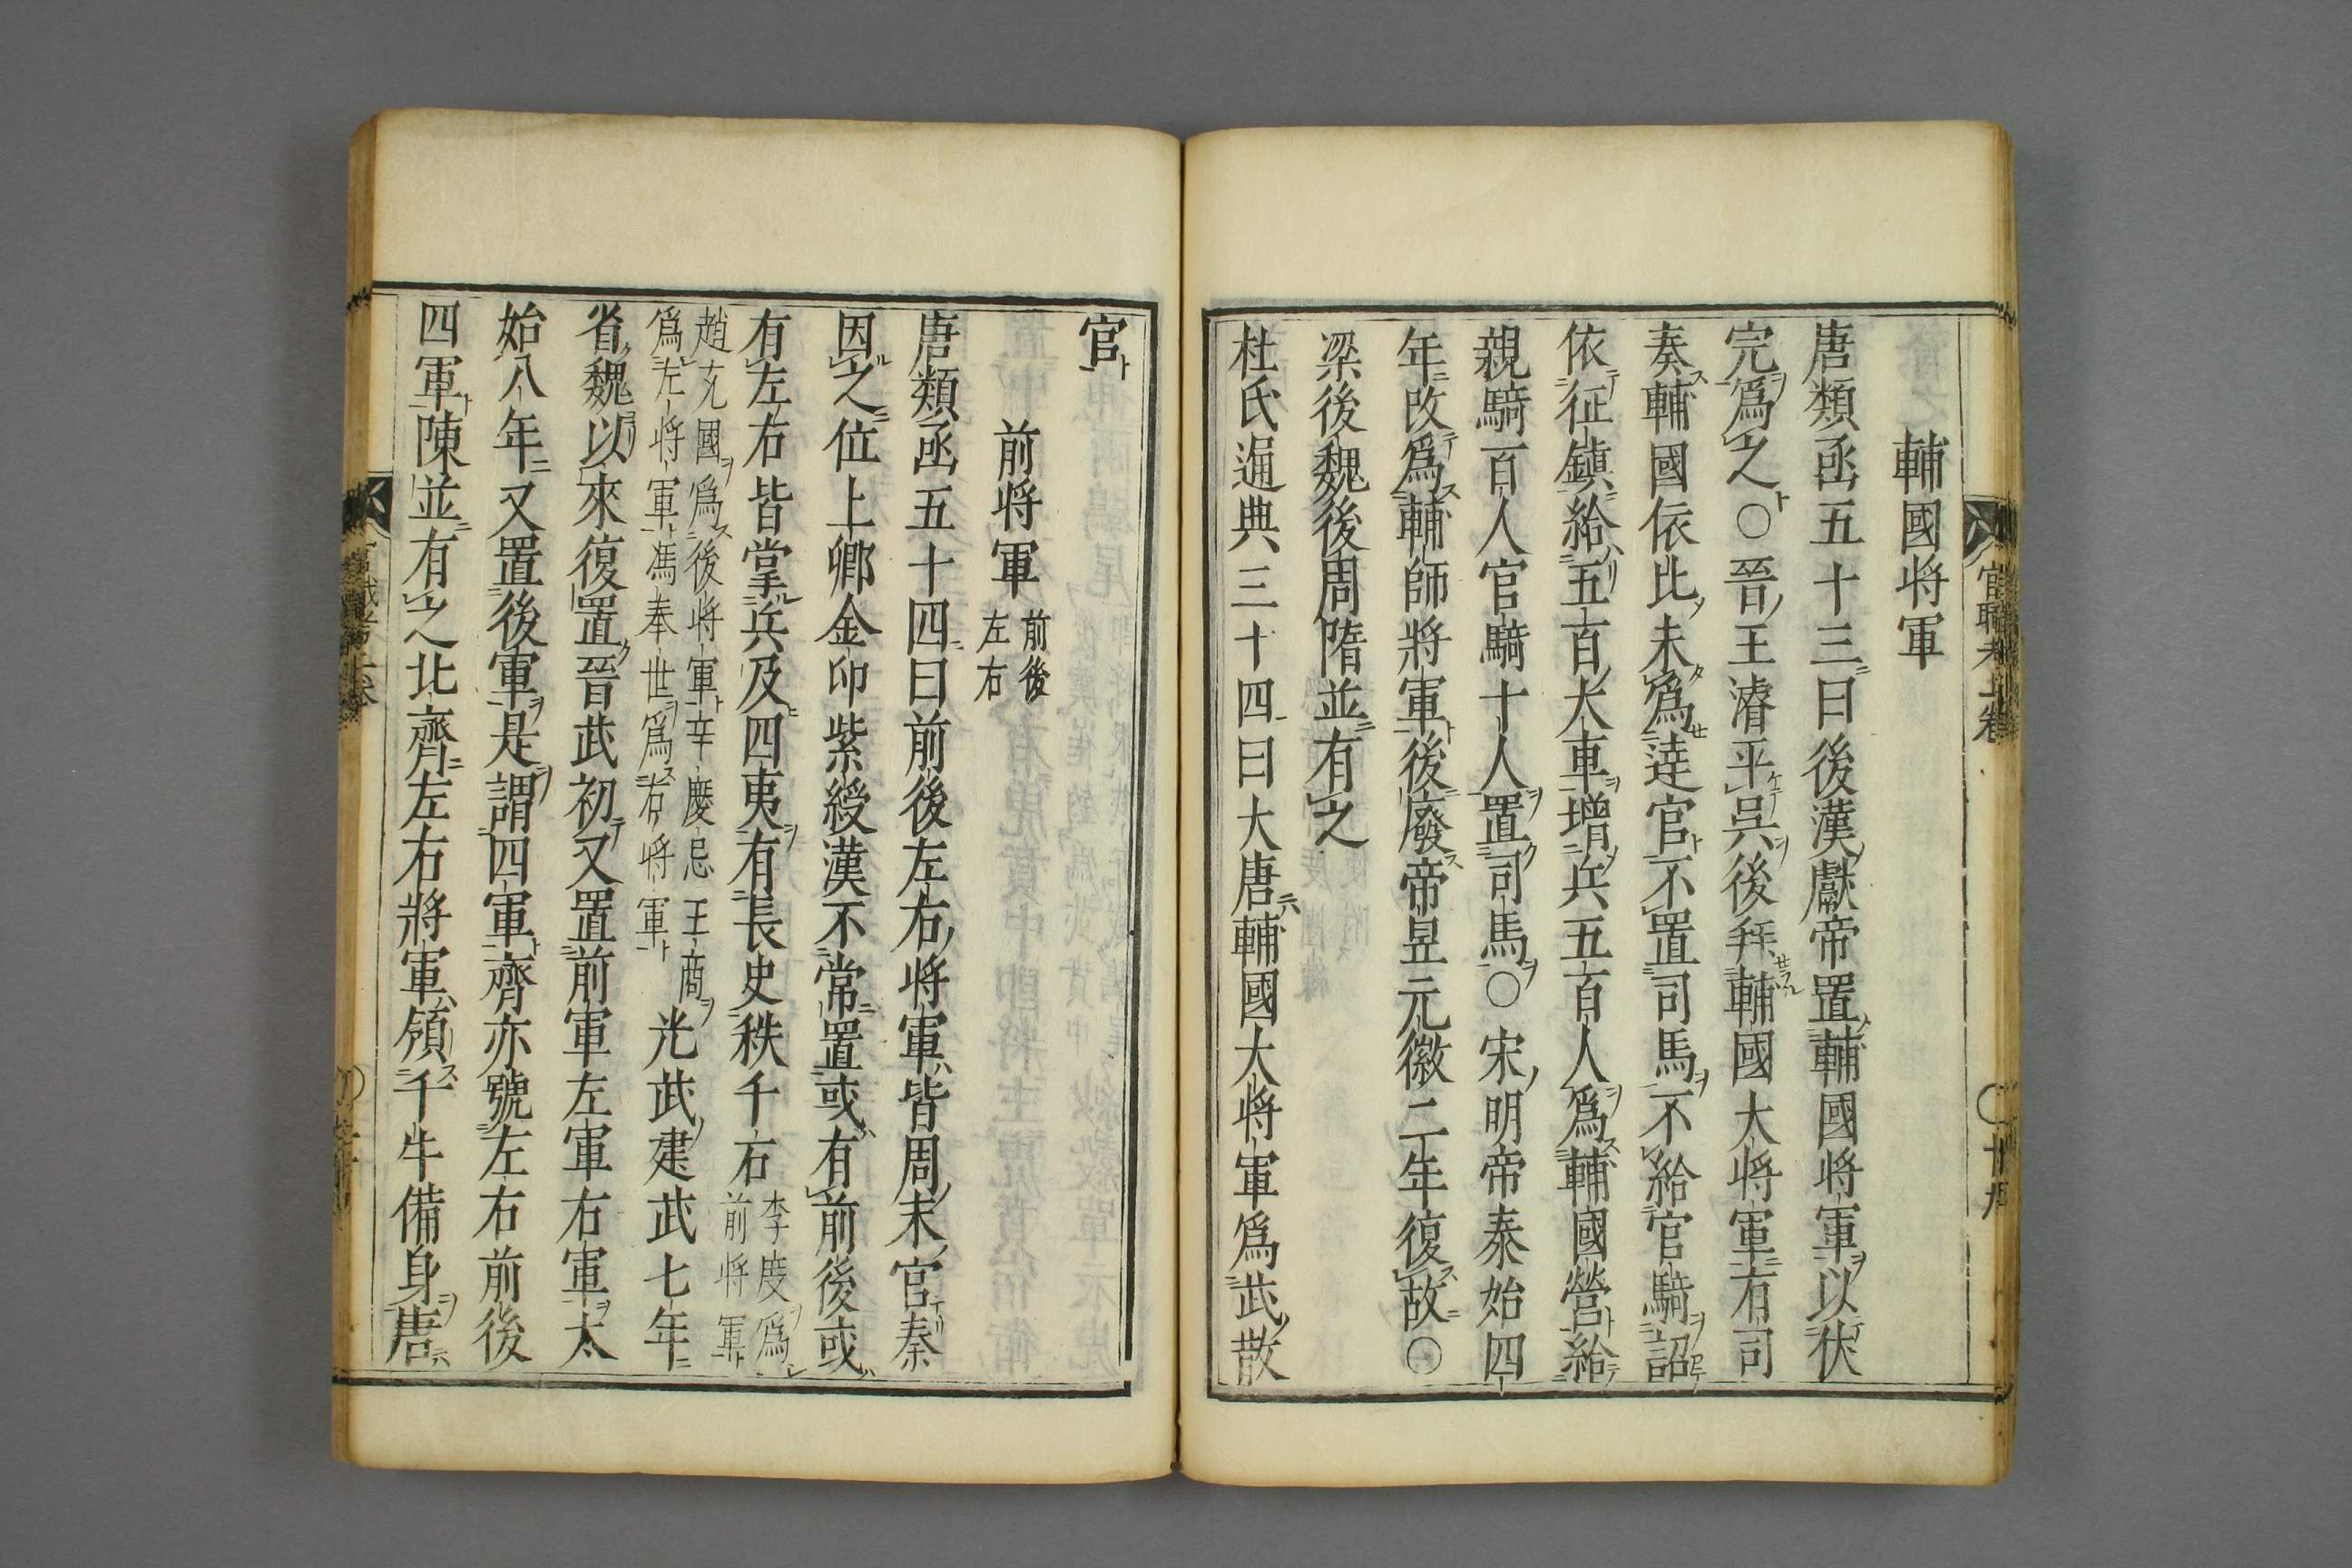 輔國将軍
唐類函五十三曰後漢獻帝置輔國将軍以伏
完爲之○晉王濬平呉後拜輔國大将軍有司
奏輔國依比未爲達官不置司馬不給官騎詔
依征鎮給五百大車増兵五百人爲輔國營給
親騎百人官騎十人置司馬○宋明帝泰始四
年改爲輔師將軍後廢帝昱元徽二年復故○
梁後魏後周隋並有之
杜氏通典三十四曰大唐輔國大将軍爲武散
官
前将軍 前後左右
唐類函五十四曰前後左右将軍皆周末官秦
因之位上卿金印紫綬漢不常置或有前後或
有左右皆掌兵及四夷有長史秩千石 李廣爲前将軍
趙充國爲後将軍辛慶忌王商爲左将軍馮奉世爲右将軍 光武建武七年
省魏以來復置晉武初又置前軍左軍右軍太
始八年又置後軍是謂四軍齊亦號左右前後
四軍陳並有之北齊左右將軍領千牛備身唐
官職考上卷
十九